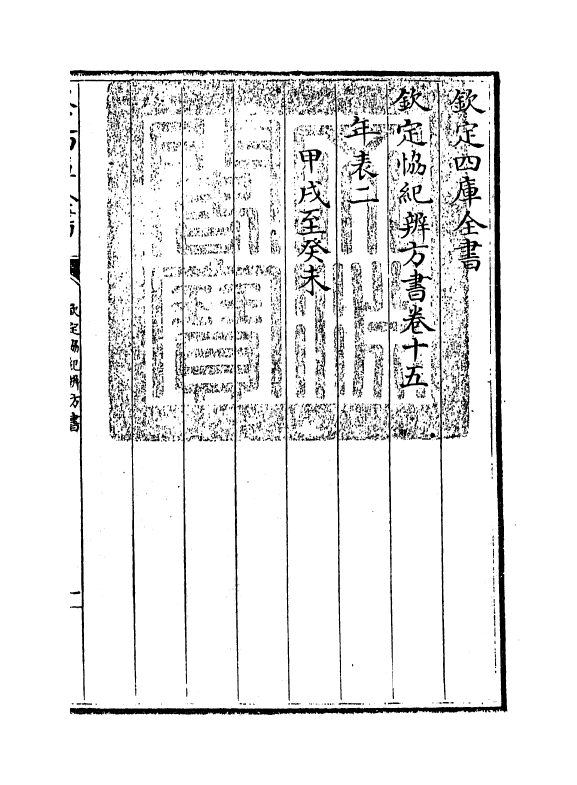 欽定四庫全書
欽定協紀辨方書卷十五
年表二
甲戌至癸未
欽定協紀辨方書